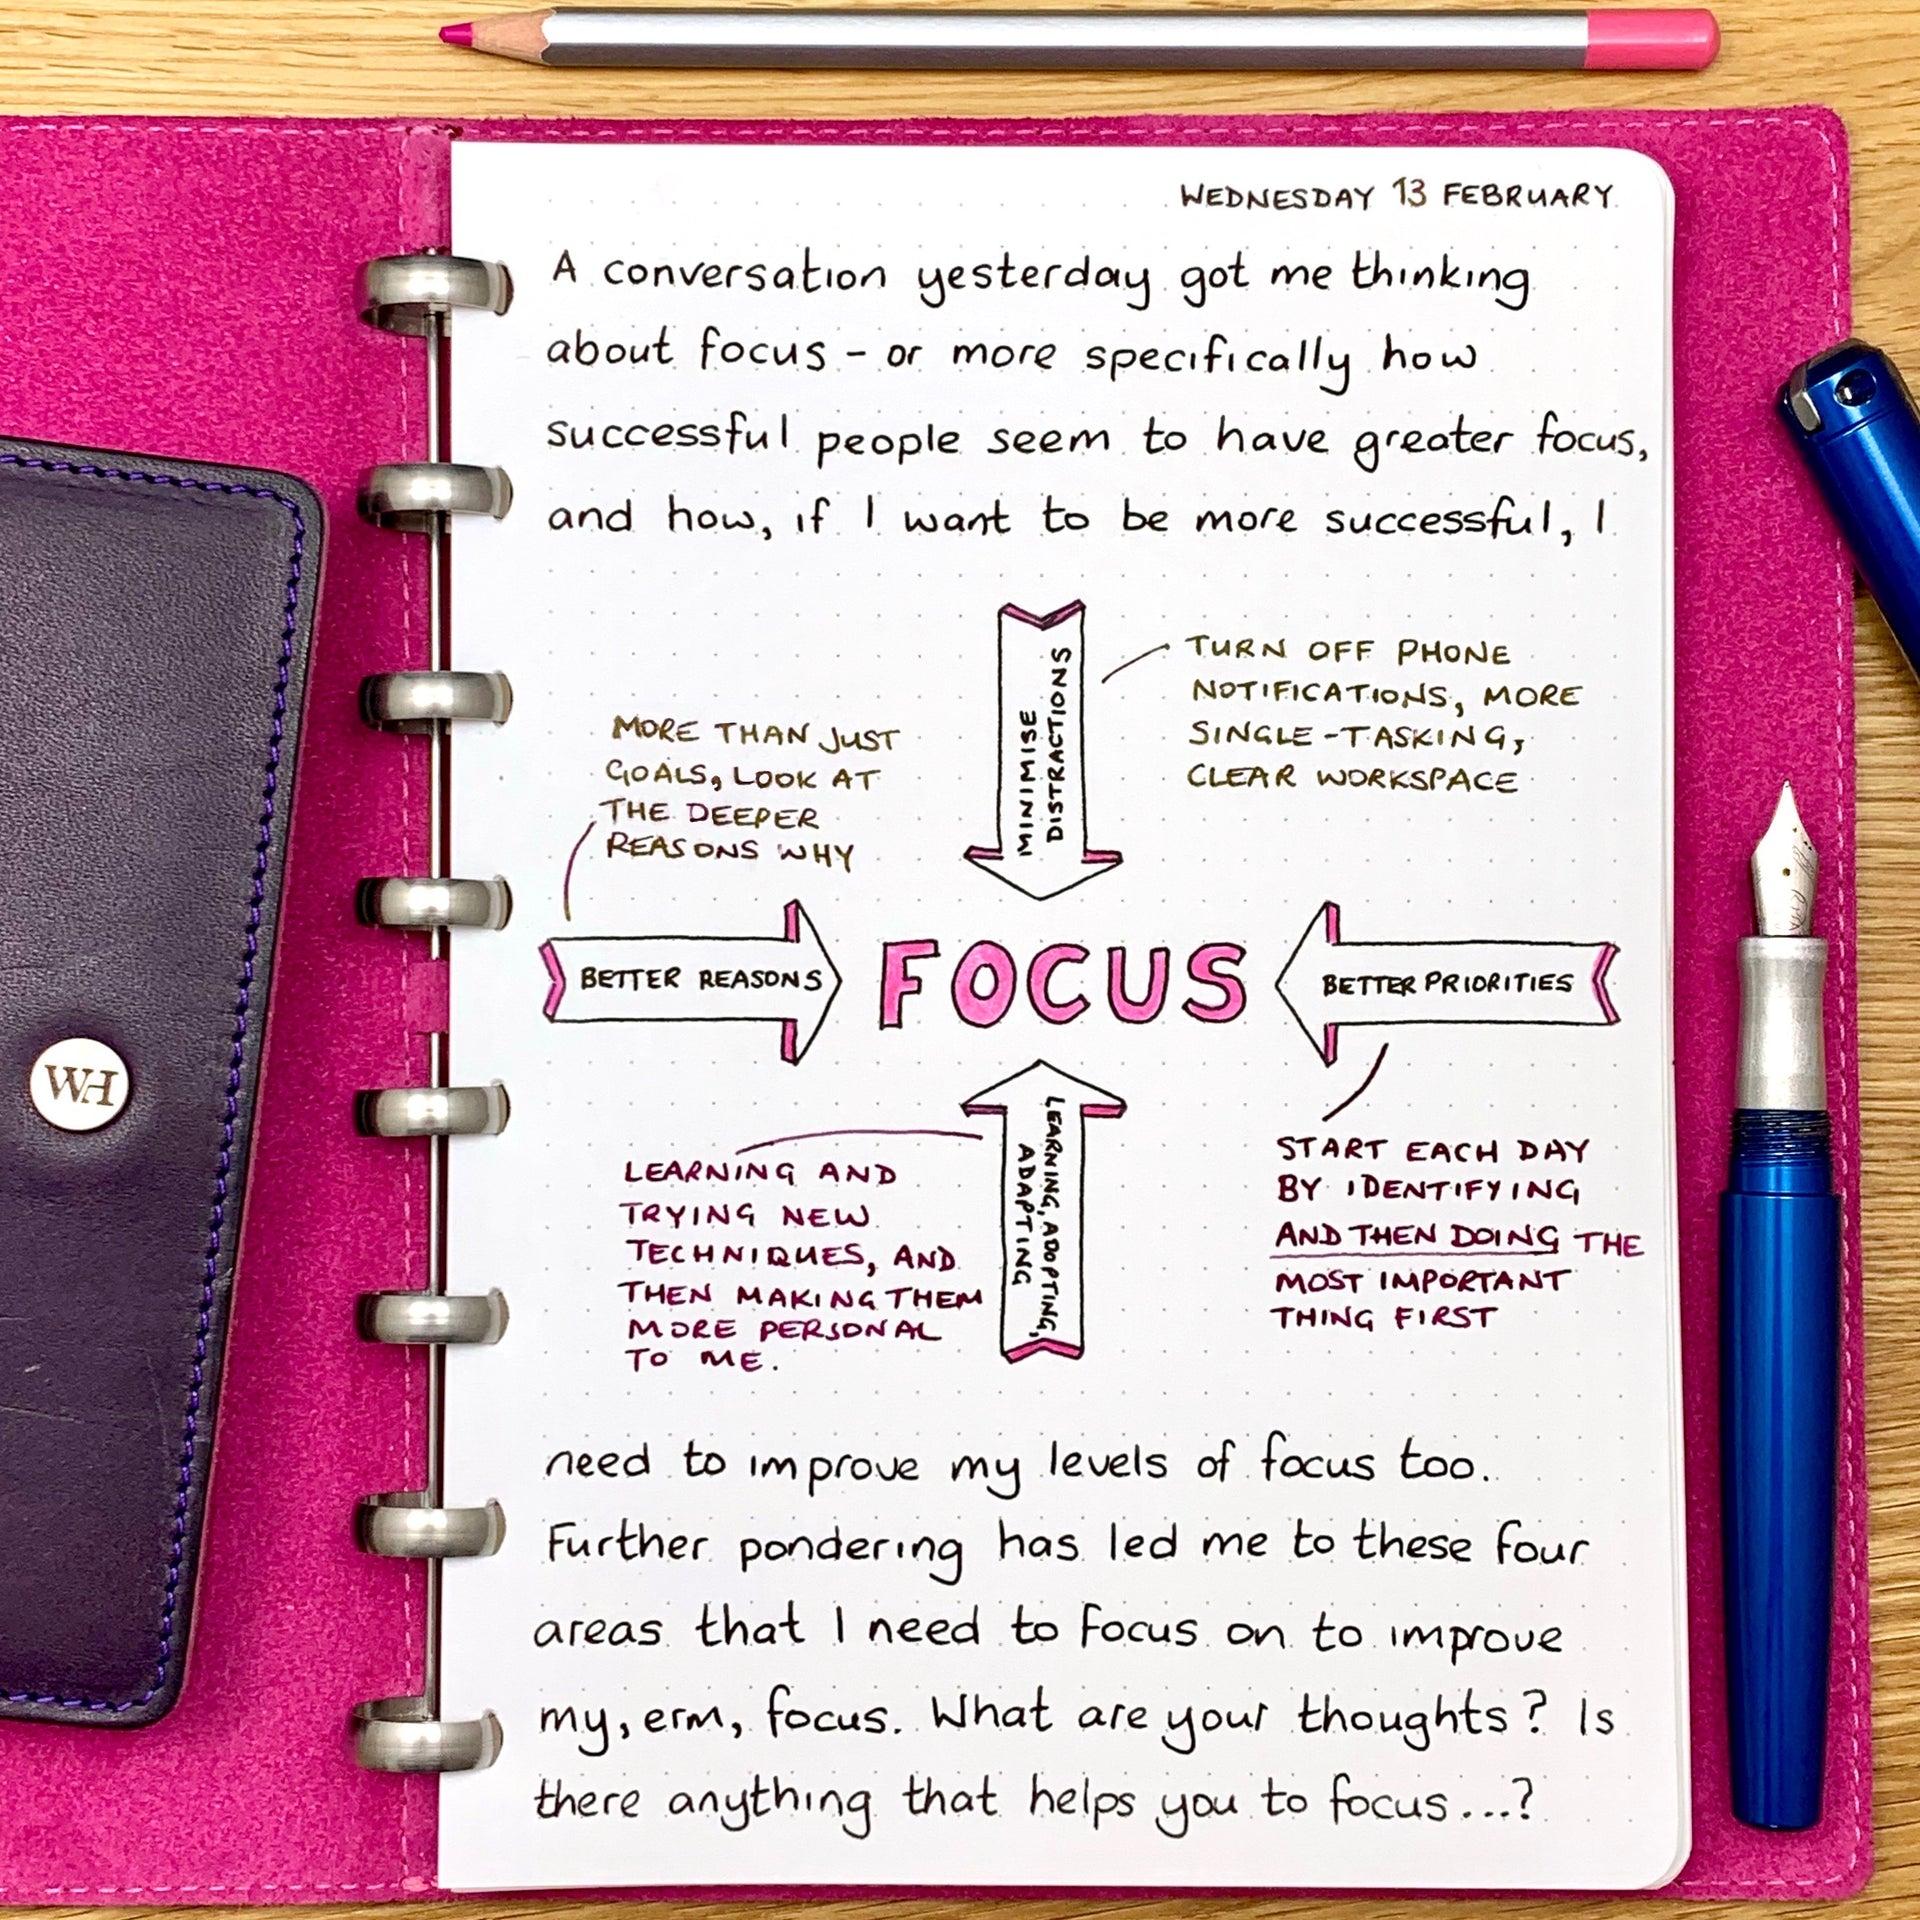 WEDNESDAY 13 FEBRUARY
A conversation yesterday got me thinking
about focus - or more specifically how
successful people seem to have greater focus,
and how, if I want to be more successful, I
MINIMISE
DISTRACTIONS
TURN OFF PHONE
NOTIFICATIONS, MORE
SINGLE-TASKING,
CLEAR WORKSPACE
MORE THAN JUST
GOALS, LOOK AT
THE DEEPER
REASONS WHY
BETTER REASONS
FOCUS
BETTER PRIORITIES
LEARNING, ADOPTING,
ADAPTING
LEARNING AND
TRYING NEW
TECHNIQUES, AND
THEN MAKING THEM
MORE PERSONAL
TO ME.
START EACH DAY
BY IDENTIFYING
AND THEN DOING THE
MOST IMPORTANT
THING FIRST
need to improve my levels of focus too.
Further pondering has led me to these four
areas that I need to focus on to improve
my, erm, focus. What are your thoughts? Is
there anything that helps you to focus...?
WH